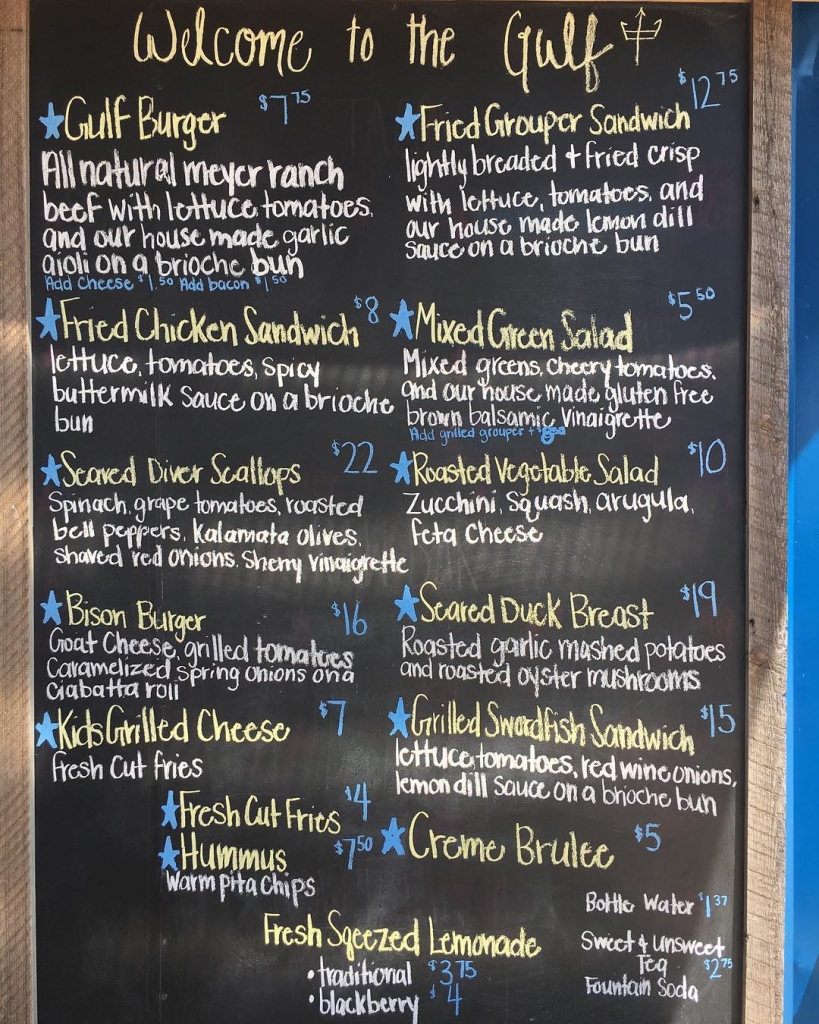 Welcome to the Gulf
Gulf Burger $7.75
All natural meyer ranch
beef with lettuce, tomatoes,
and our house made garlic
aioli on a brioche bun
Add Cheese $1.50 Add bacon $1.50
Fried Grouper Sandwich $12.75
lightly breaded + fried crisp
with lettuce, tomatoes, and
our house made lemon dill
sauce on a brioche bun
Fried Chicken Sandwich $8
lettuce, tomatoes, spicy
buttermilk sauce on a brioche
bun
Mixed Green Salad $5.50
Mixed greens, cherry tomatoes,
and our house made gluten free
brown balsamic vinaigrette
Add grilled grouper +
Seared Diver Scallops $22
Spinach, grape tomatoes, roasted
bell peppers, Kalamata olives,
shaved red onions, Sherry vinaigrette
Roasted Vegetable Salad $10
Zucchini, Squash, arugula,
feta cheese
Bison Burger $16
Goat Cheese, grilled tomatoes
Caramelized spring onions on a
Ciabatta roll
Seared Duck Breast $19
Roasted garlic mashed potatoes
and roasted oyster mushrooms
Kids Grilled Cheese $7
fresh cut fries
Grilled Swordfish Sandwich $15
lettuce, tomatoes, red wine onions,
lemon dill sauce on a brioche bun
Fresh Cut Fries $4
Hummus $7.50
Warm pita chips
Creme Brulee $5
Fresh Sqeezed Lemonade
• traditional $3.75
• blackberry $4
Bottle Water $1.37
Sweet & Unsweet
Tea $2.75
Fountain Soda